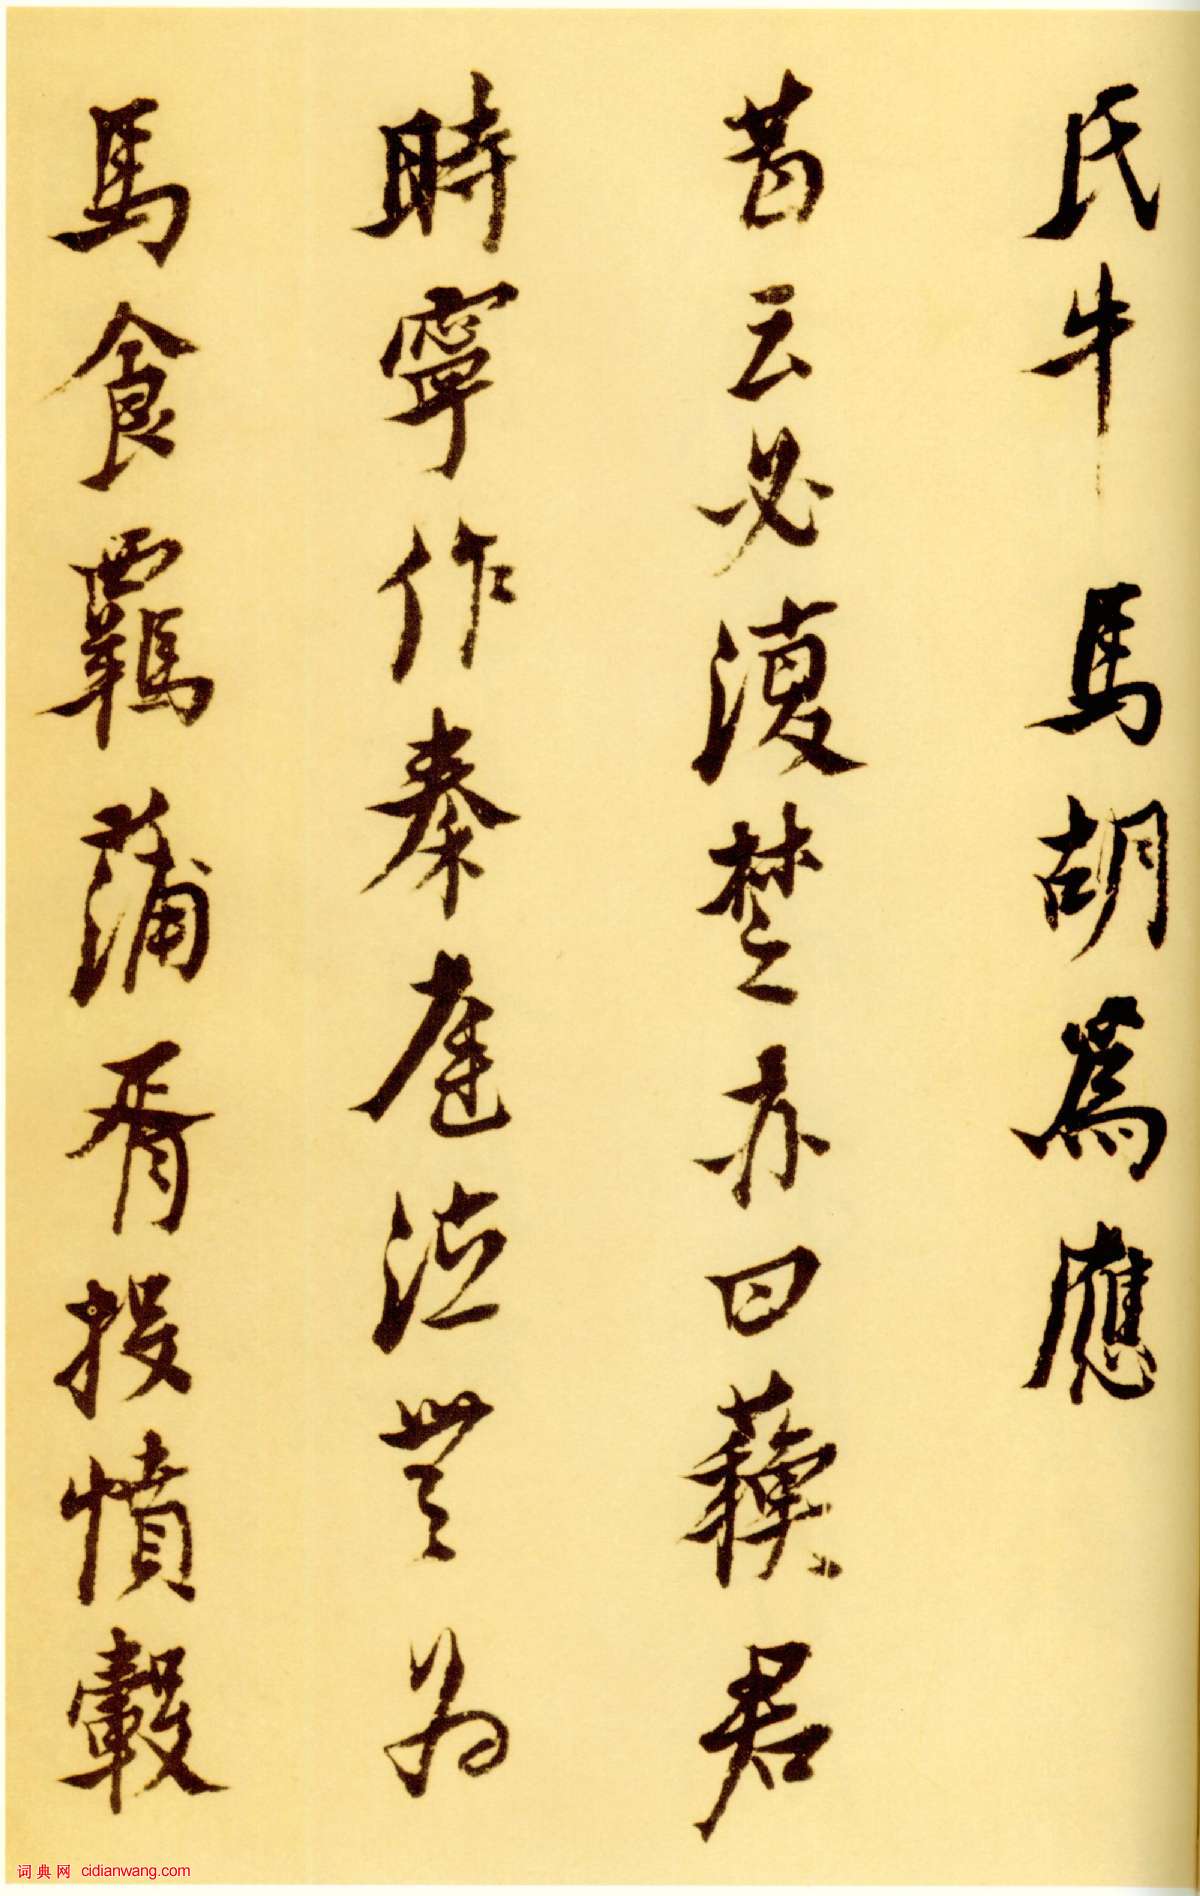 氏牛馬胡爲應
昔云必復楚亦曰蘇君
時寧作秦庭泣豈为
馬食羈蒲胥投憤轂
词典网 cidianwang.com